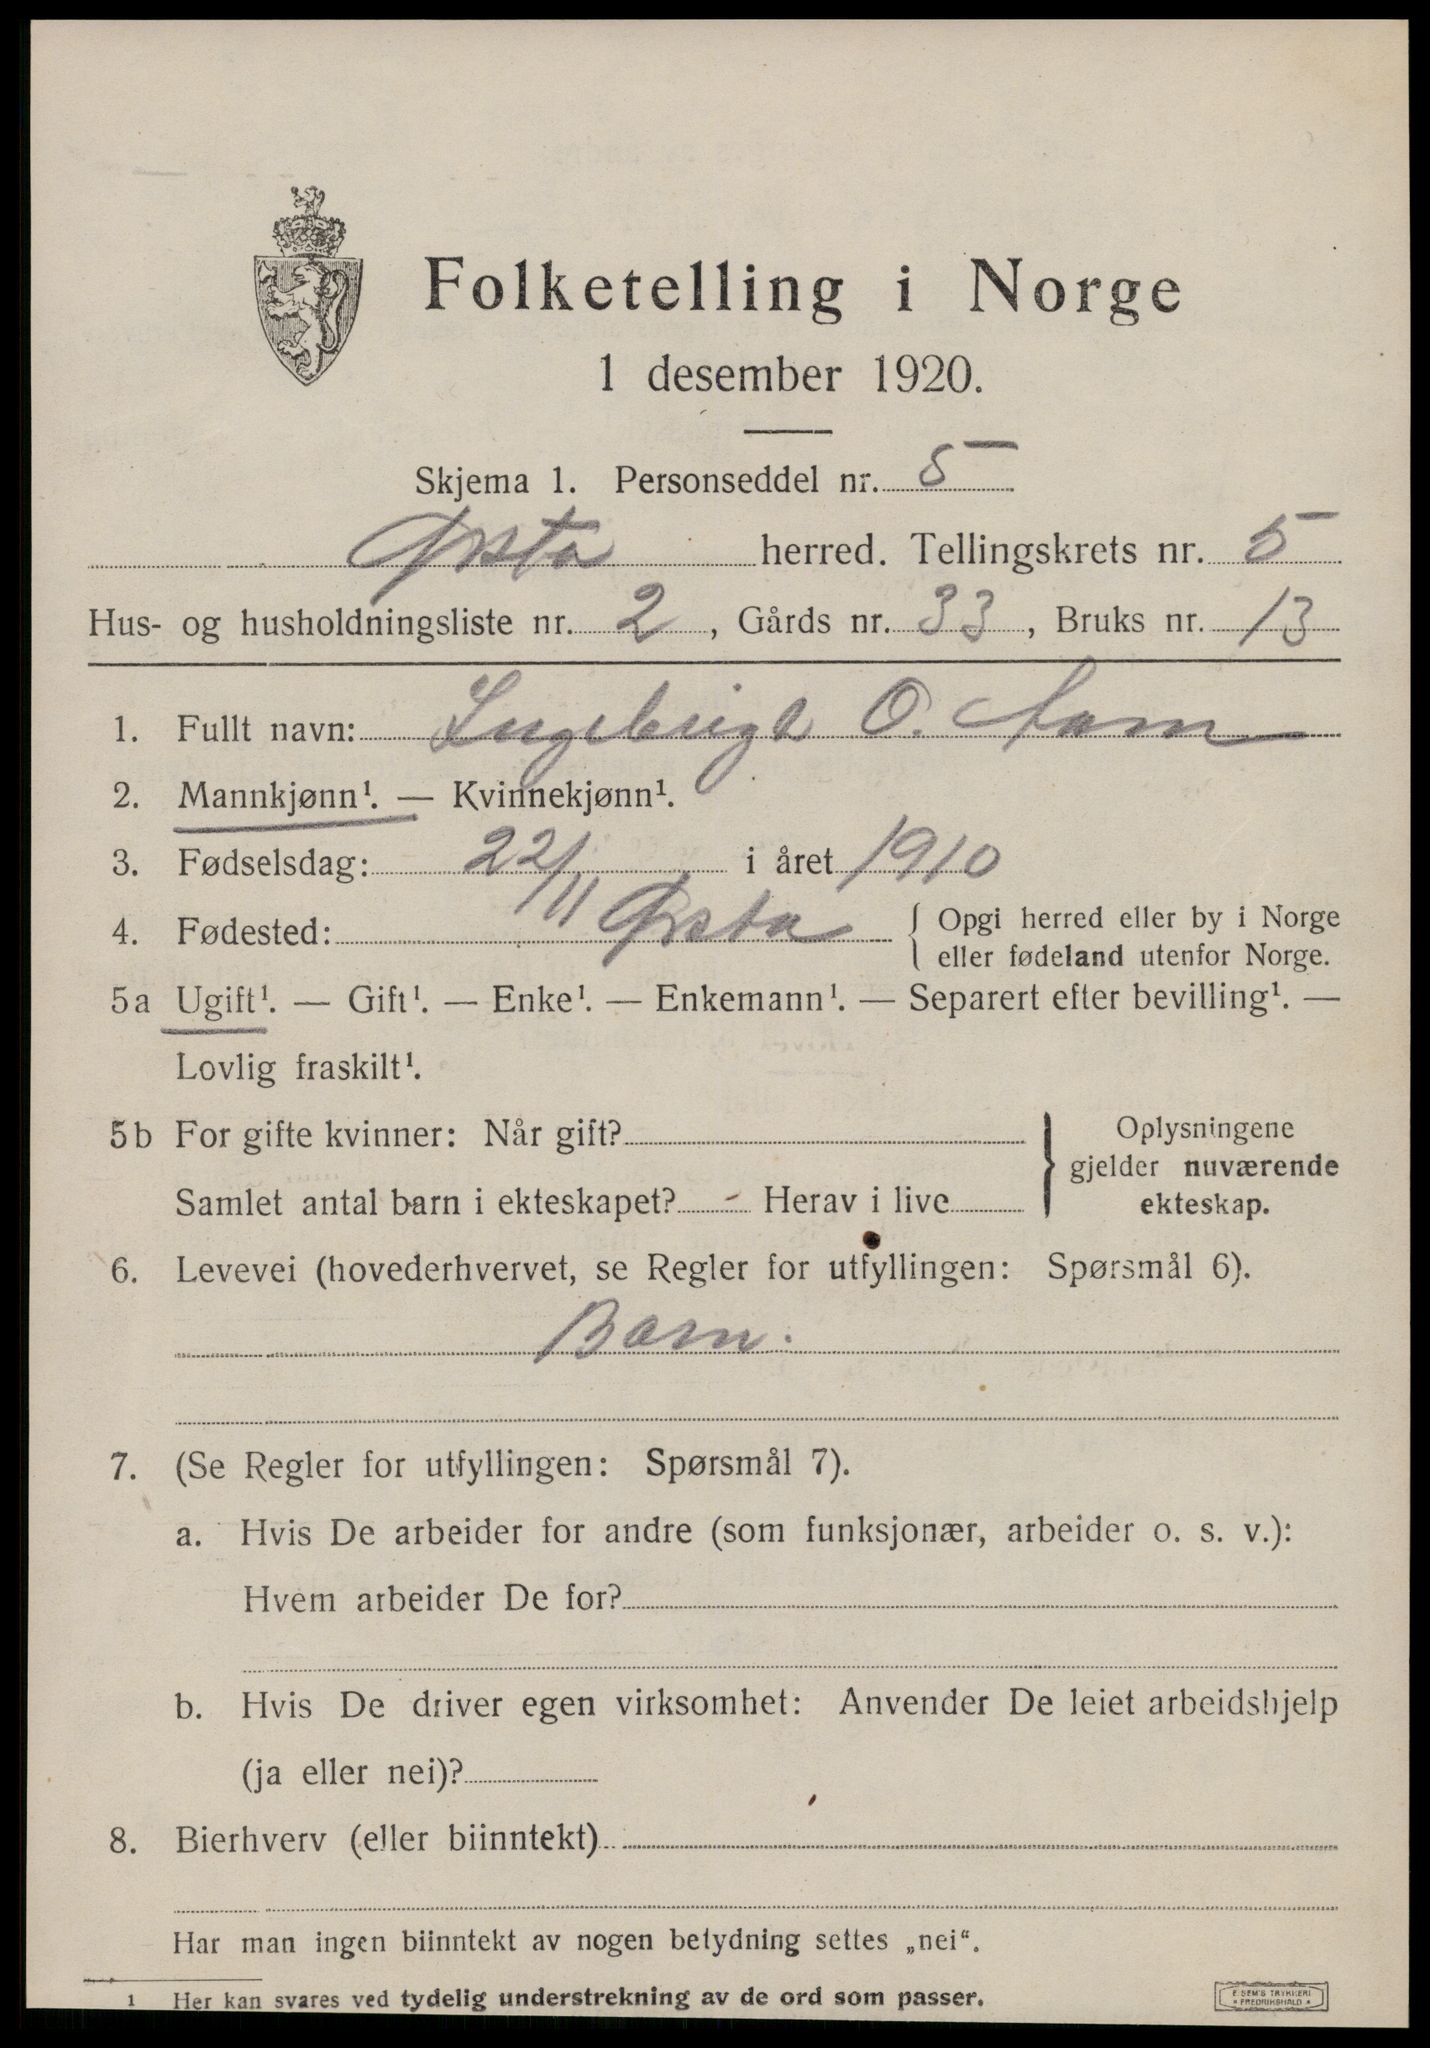 Folketelling i Norge
1 desember 1920.
Skjema 1. Personseddel nr. 5
Ørsta herred. Tellingskrets nr. 5
Hus- og husholdningsliste nr. 2, Gårds nr. 33, Bruks nr. 13
1. Fullt navn: Ingebrigt O. Aam
2. Mannkjønn¹. — Kvinnekjønn¹.
3. Fødselsdag: 22/11 i året 1910
4. Fødested: Ørsta { Opgi herred eller by i Norge
eller fødeland utenfor Norge.
5a Ugift¹. — Gift¹. — Enke¹. — Enkemann¹. — Separert efter bevilling¹. —
Lovlig fraskilt¹.
5b For gifte kvinner: Når gift?
Samlet antal barn i ekteskapet? - Herav i live
} Oplysningene
gjelder nuværende
ekteskap.
6. Levevei (hovederhvervet, se Regler for utfyllingen: Spørsmål 6).
Barn.
7. (Se Regler for utfyllingen: Spørsmål 7).
a. Hvis De arbeider for andre (som funksjonær, arbeider o. s. v.):
Hvem arbeider De for?
b. Hvis De driver egen virksomhet: Anvender De leiet arbeidshjelp
(ja eller nei)?
8. Bierhverv (eller biinntekt)
Har man ingen biinntekt av nogen betydning settes „nei“.
1 Her kan svares ved tydelig understrekning av de ord som passer.
E. SEM'S TRYKKERI
* FREDRIKSHALD *